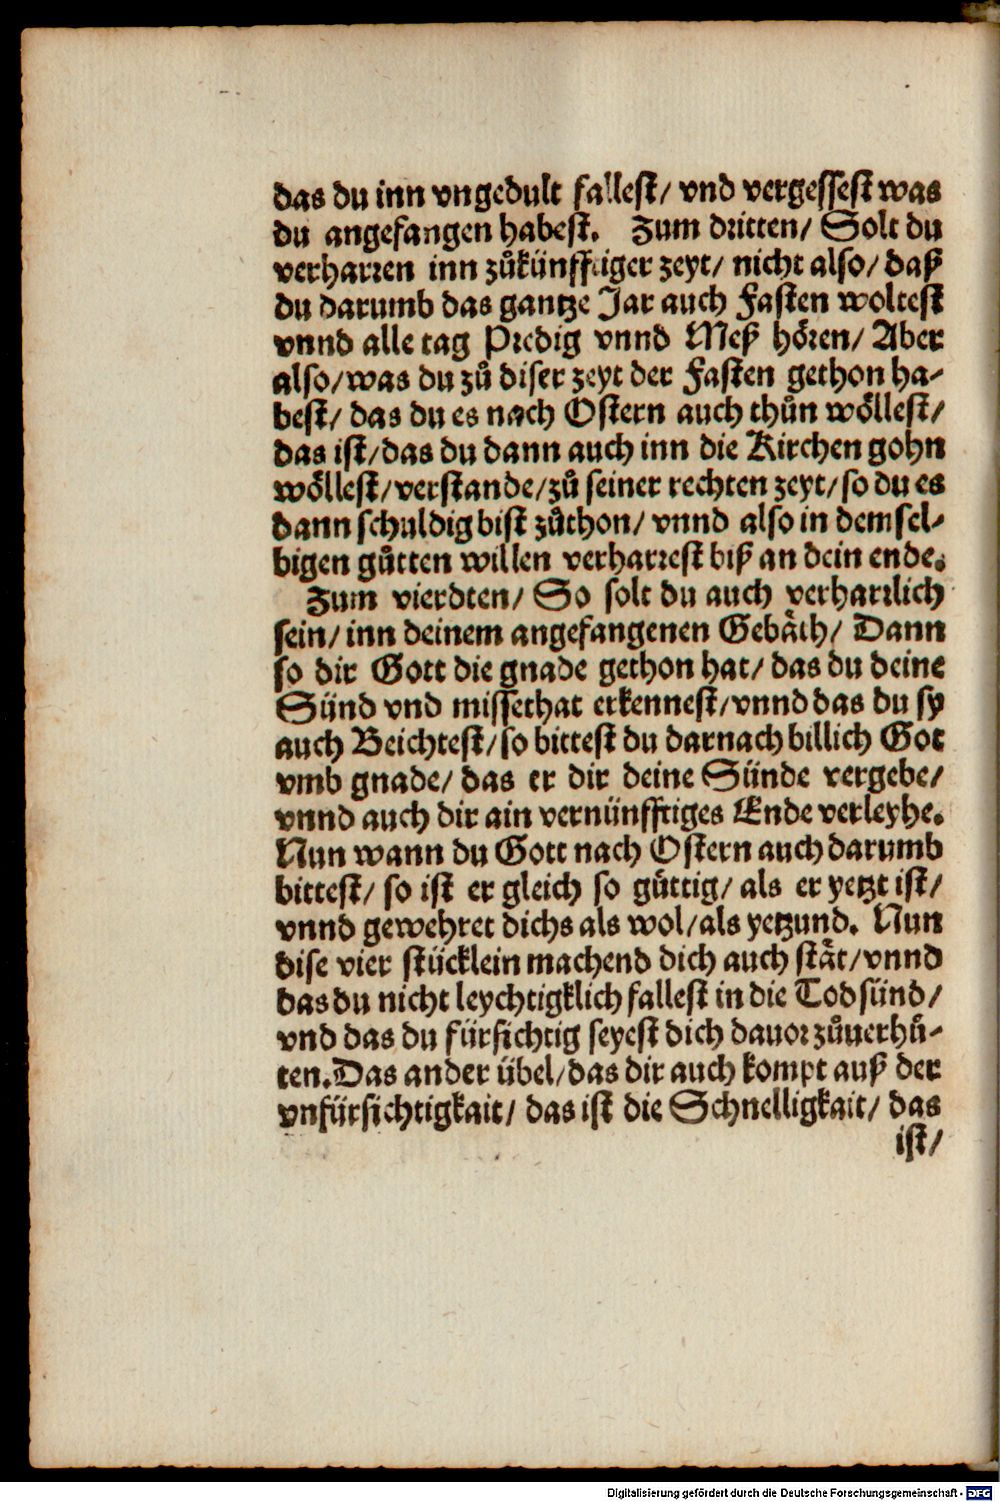 das du inn vngedult fallest/ vnd vergessest was
du angefangen habest. Zum dritten/ Solt du
verharren inn zůkünfftiger zeyt/ nicht also/ daß
du darumb das gantze Jar auch Fasten woltest
vnnd alle tag Predig vnnd Meß hören/ Aber
also/was du zů diser zeyt der Fasten gethon ha-
best/ das du es nach Ostern auch thůn wöllest/
das ist/das du dann auch inn die Kirchen gohn
wöllest/verstande/zů seiner rechten zeyt/so du es
dann schuldig bist zůthon/ vnnd also in demsel-
bigen gůtten willen verharrest biß an dein ende.
Zum vierdten/ So solt du auch verharrlich
sein/ inn deinem angefangenen Gebäth/ Dann
so dir Gott die gnade gethon hat/ das du deine
Sünd vnd missethat erkennest/vnnd das du sy
auch Beichtest/so bittest du darnach billich Got
vmb gnade/ das er dir deine Sünde vergebe/
vnnd auch dir ain vernünfftiges Ende verleyhe.
Nun wann du Gott nach Ostern auch darumb
bittest/ so ist er gleich so güttig/ als er yetzt ist/
vnnd gewehret dichs als wol/als yetzund. Nun
dise vier stücklein machend dich auch stät/vnnd
das du nicht leychtigklich fallest in die Todsünd/
vnd das du fürsichtig seyest dich dauor zůuerhü-
ten.Das ander übel/das dir auch kompt auß der
vnfürsichtigkait/ das ist die Schnelligkait/ das
ist/
Digitalisierung gefördert durch die Deutsche Forschungsgemeinschaft - DFG